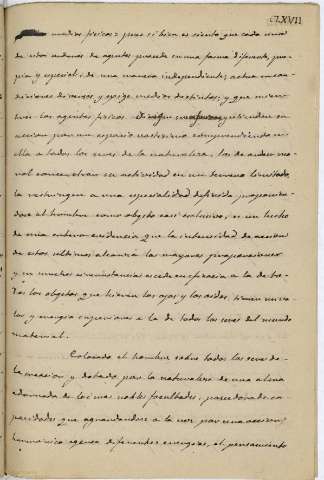 CLXVII
medios físicos: pues si bien es cierto que cada una
de estos ordenes de agentes guarda en una forma diferente, pro-
pia y especial; de una manera independiente; actua en con-
diciones diversas, y exige medios distintos; y que mien-
tras los agentes físicos estienden su
accion por un espacio vastisimo comprendiendo en
ella a todos los seres de la naturaleza, los de orden mo-
ral concentran su actividad en un terreno limitado,
la restringen a una especialidad definida proponien-
dose al hombre como objeto casi exclusivo; es un hecho
de una entera evidencia que la intensidad de accion
de estos ultimos alcanza las mayores proporciones
y en muchas circunstancias escede en eficacia a la de to-
dos los objetos que hieren los ojos y los oidos, tienen
y energia superiores a la de todos los seres del mundo
material.
Colocado el hombre sobre todos los seres de
la creacion y dotado por la naturaleza de una alma
adornada de las mas nobles facultades, poseedora de ca-
pacidades que agrandandose a la vez por una accion
harmonica agena diferentes energias, el pensamiento